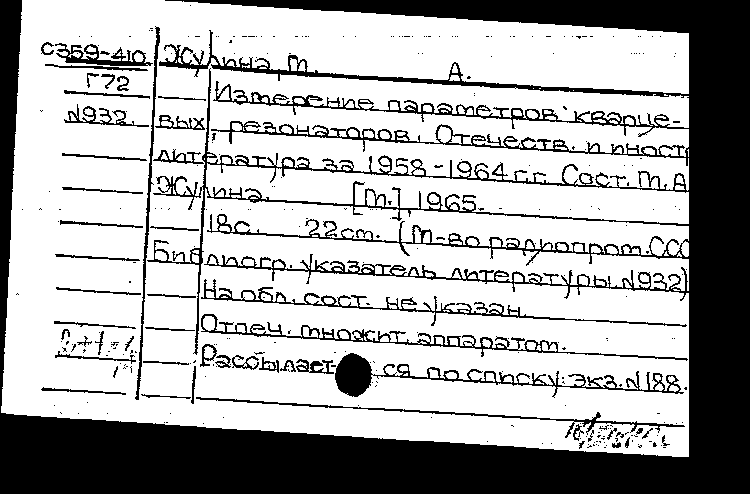 С359-410 Жулина, М. А.
Г72
Измерение параметров кварце-
N932. вых резонаторов. Отечеств. и иност
литература за 1958-1964 г.г. Сост. М. А
Жулина. [М.], 1965.
18с. 22см. (М-во радиопром. ССС
Библиогр. указатель литературы. N932)
На обл. сост. не указан.
Отпеч. множит. аппаратом.
Рассылает ся по списку: экз. N188.